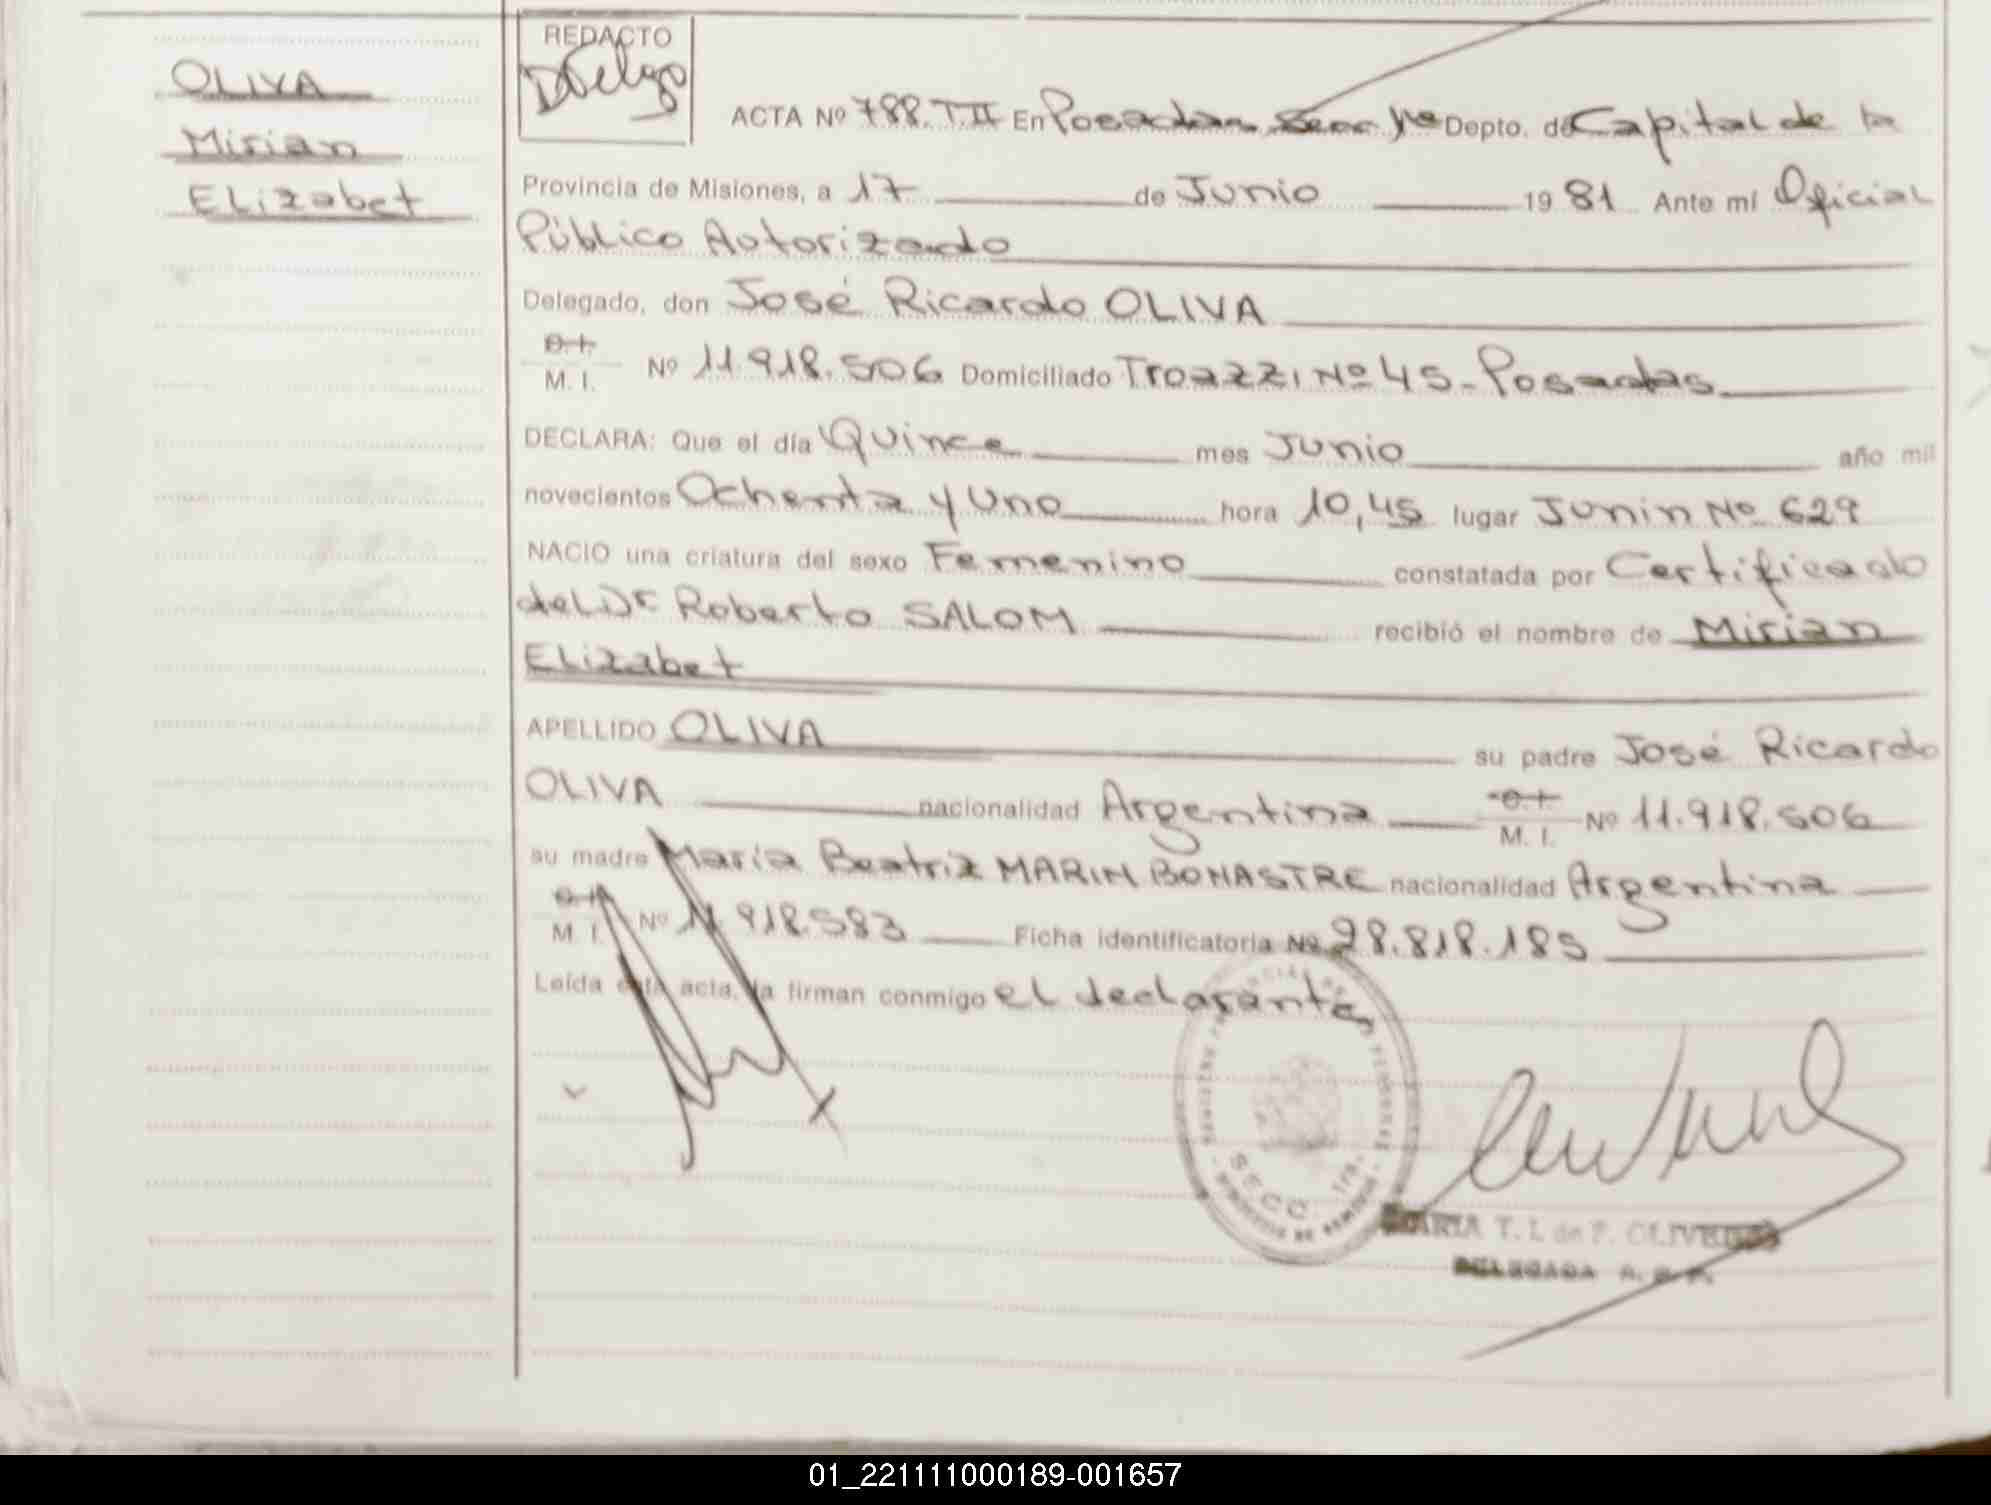 OLIVA
Mirian
Elizabet
REDACTO
ACTA Nº 788.T.II En Posadas Secc 1ra Depto. de Capital de la
Provincia de Misiones, a 17 de Junio 1981 Ante mí Oficial
Público Autorizado
Delegado, don José Ricardo OLIVA
D.I.
M. I. Nº 11.918.506 Domiciliado Troazzi Nº 45-Posadas
DECLARA: Que el día Quince mes Junio año mil
novecientos Ochenta y Uno hora 10,45 lugar Junin Nº 629
NACIO una criatura del sexo Femenino constatada por Certificado
del Dr Roberto SALOM recibió el nombre de Mirian
Elizabet
APELLIDO OLIVA su padre José Ricardo
OLIVA nacionalidad Argentina M. I. Nº 11.918.506
su madre María Beatriz MARIN BONASTRE nacionalidad Argentina
M. I. Nº 11.918.583 Ficha identificatoria Nº 28.818.185
Leída esta acta, la firman conmigo el declarante,
SECC. 1ra.
MARIA T. L de F. OLIVE
DELEGADA
01_221111000189-001657